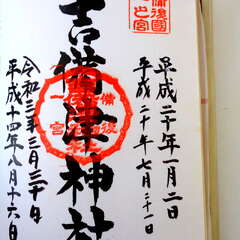 備後國
一之宮
平成二十年一月二日
平成二十年七月二十一日
吉備津神社
令和三年三月三十日
平成十四年八月十六日